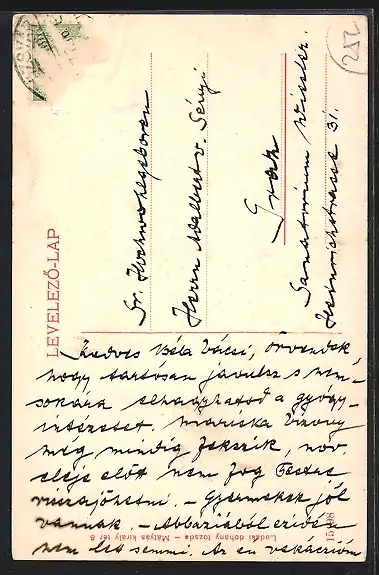 LEVELEZŐ-LAP
Sr. Hochwohlgeboren
Herrn Adalbert v. Sényi
Graz
Sanatorium Wiesler
Heinrichstrasse 31.
252
Kedves Béla bácsi, örvendek
hogy tartósan javulsz s nem-
sokára elhagyhatod a gyógy-
intézetet. Mariska Vizony
még mindig fekszik, nov.
eleje előtt nem fog Pestre
visszajöhetni. - Gyermekek jól
vannak. - Abbaziából ezidén
nem lett semmi. Az én vakációm
Ludasi dohány tozsda - Mátyás király tér 8